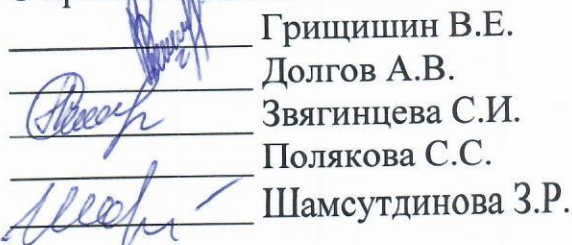 Грищишин В.Е.
Долгов А.В.
Звягинцева С.И.
Полякова С.С.
Шамсутдинова З.Р.